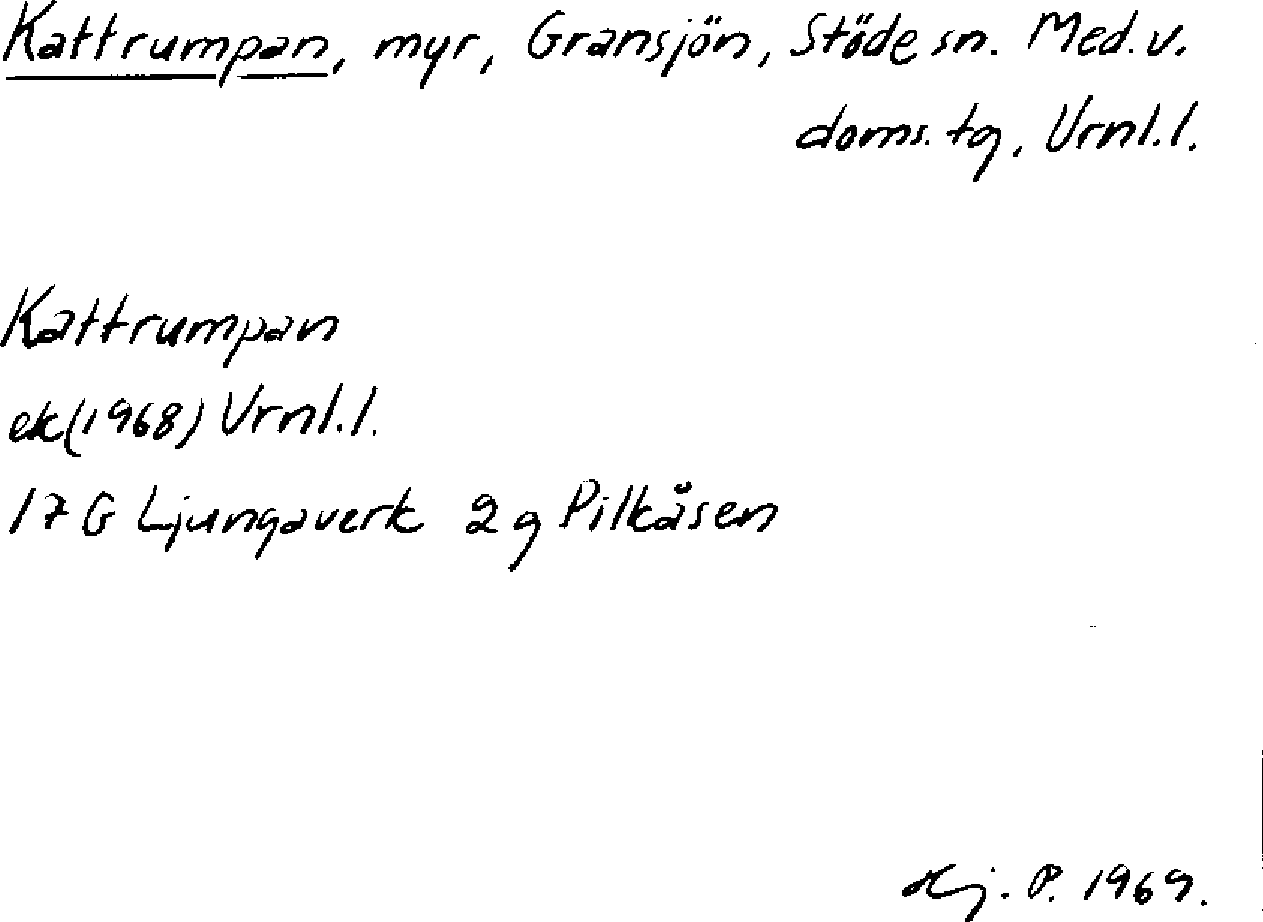 Kattrumpan, myr, Gransjön, Stöde sn. Med. v.
doms. tg, Vrnl. l.
Kattrumpan
ek (1968) Vrnl. l.
17 G Ljungaverk 2 g Pilkåsen
Hj. P. 1969.